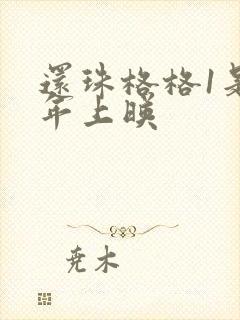 還珠格格1是
年上映
尭木